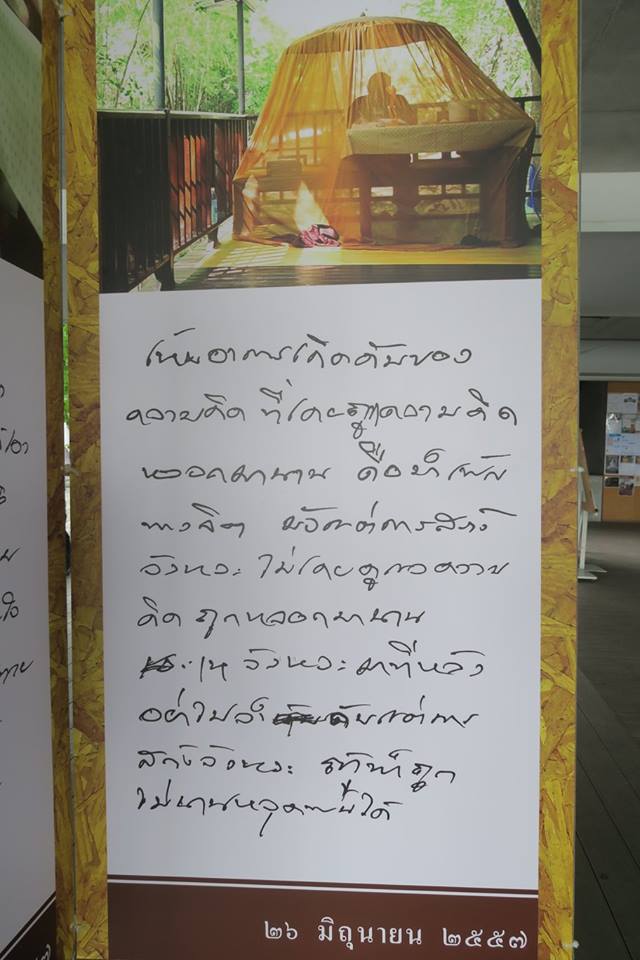 เห็นอาการเกิดดับของ
ความคิด ที่เคยถูกความคิด
หลอกมานาน คือ
ทางจิต มีแต่การสร้าง
จังหวะ ไม่เคยดู ความ
คิด ถูกหลอกมานาน
จังหวะมาทีหลัง
อย่าไป แต่การ
สร้างจังหวะ ถ้าทำถูก
ไม่นานหลุดพ้นได้
๒๖ มิถุนายน ๒๕๕๗